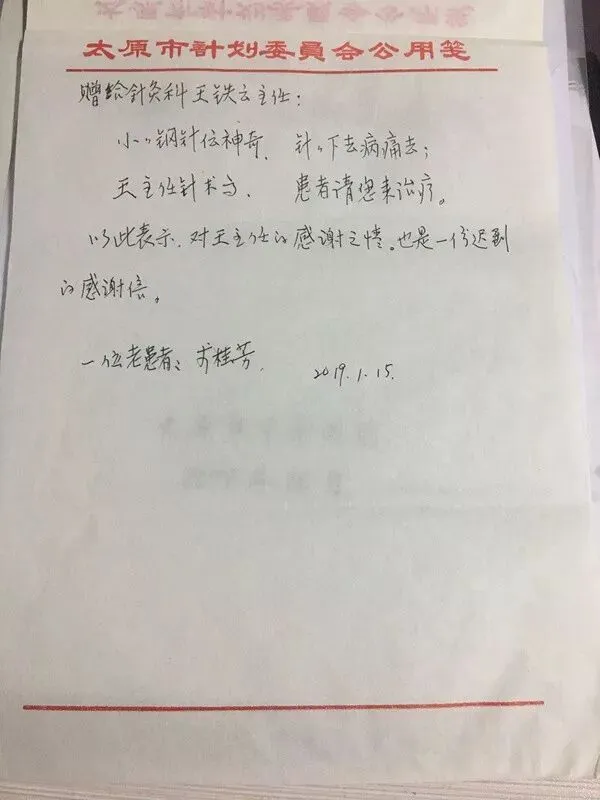 太原市計划委員会公用笺
赠给針灸科王铁云主任:
小小钢针似神奇. 针针下去病痛去;
王主任针术高. 患者请您来治疗。
以此表示.对王主任的感谢之情。也是一份迟到
的感谢信。
一位老患者: 桂芳. 2019.1.15.